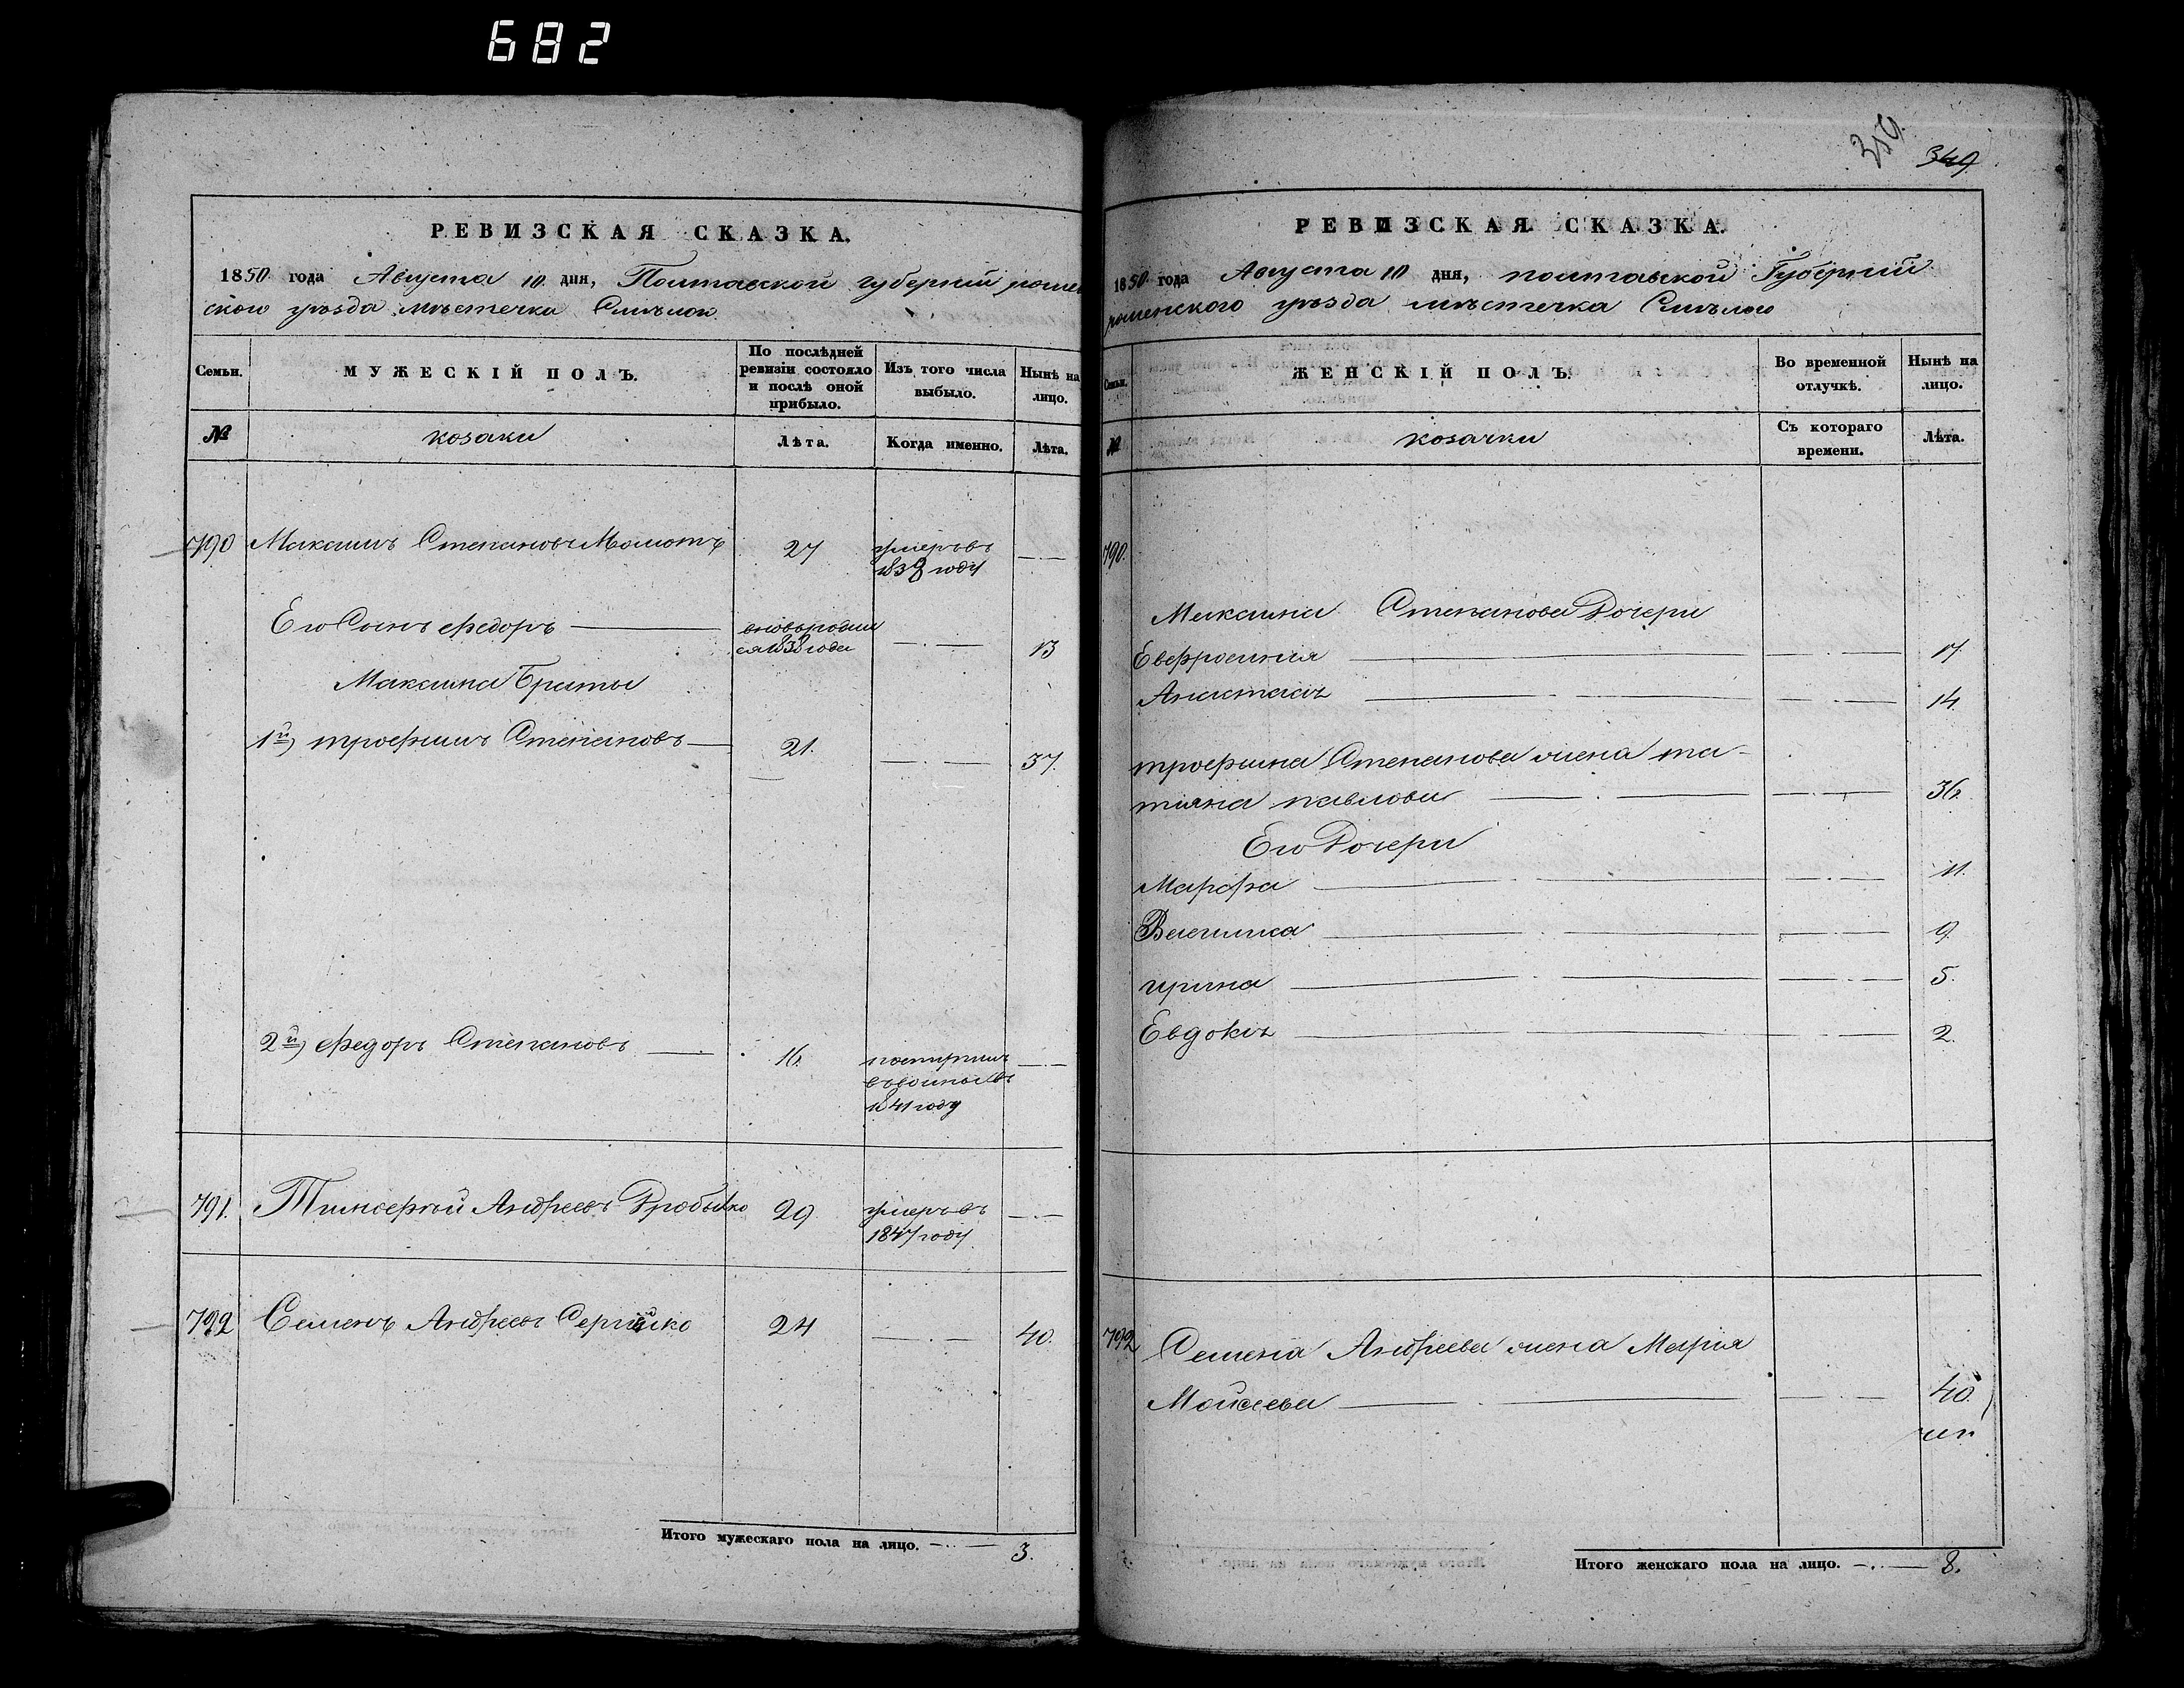 682
РЕВИЗСКАЯ СКАЗКА.
1850 года Августа 10 дня, Полтавской губерніи ромен
ского уѣзда мѣстечка Смѣлого
Семьи.
МУЖЕСКІЙ ПОЛЪ.
По послѣдней ревизіи состояло и послѣ оной прибыло.
Изъ того числа выбыло.
Нынѣ на лицо.
№
козаки
Лѣта.
Когда именно.
Лѣта.
790 Максимъ Степановъ Момотъ 27 умеръ въ
1839 году
Его Сынъ Федоръ вновь родил
ся 1838 года 13
Максима Браты
1й) трофимъ Степановъ 21. 37.
2й) Федоръ Степановъ 16.
1841 году
791. Тимофѣй Андреевъ Дробыко 29 умеръ въ
1847 году
792 Семенъ Андреевъ 24 40.
Итого мужескаго пола на лицо. 3.
359.
349
РЕВИЗСКАЯ СКАЗКА.
1850 года Августа 10 дня, полтавской Губерніи
роменского уѣзда мѣстечка Смѣлого
Семьи.
ЖЕНСКІЙ ПОЛЪ.
Во временной отлучкѣ.
Нынѣ на лицо.
№
козачки
Съ котораго времени.
Лѣта.
790.
Максима Степанова Дочери
Евфросинія 17
Анастасія 14
трофима Степанова жена та-
тіяна павлова 36.
Его Дочери
Марфа 11.
Василиса 9
ирина 5.
Евдокія 2.
792 Семена Андреева жена Марія
Мойсеева 40.
Итого женскаго пола на лицо. 8.